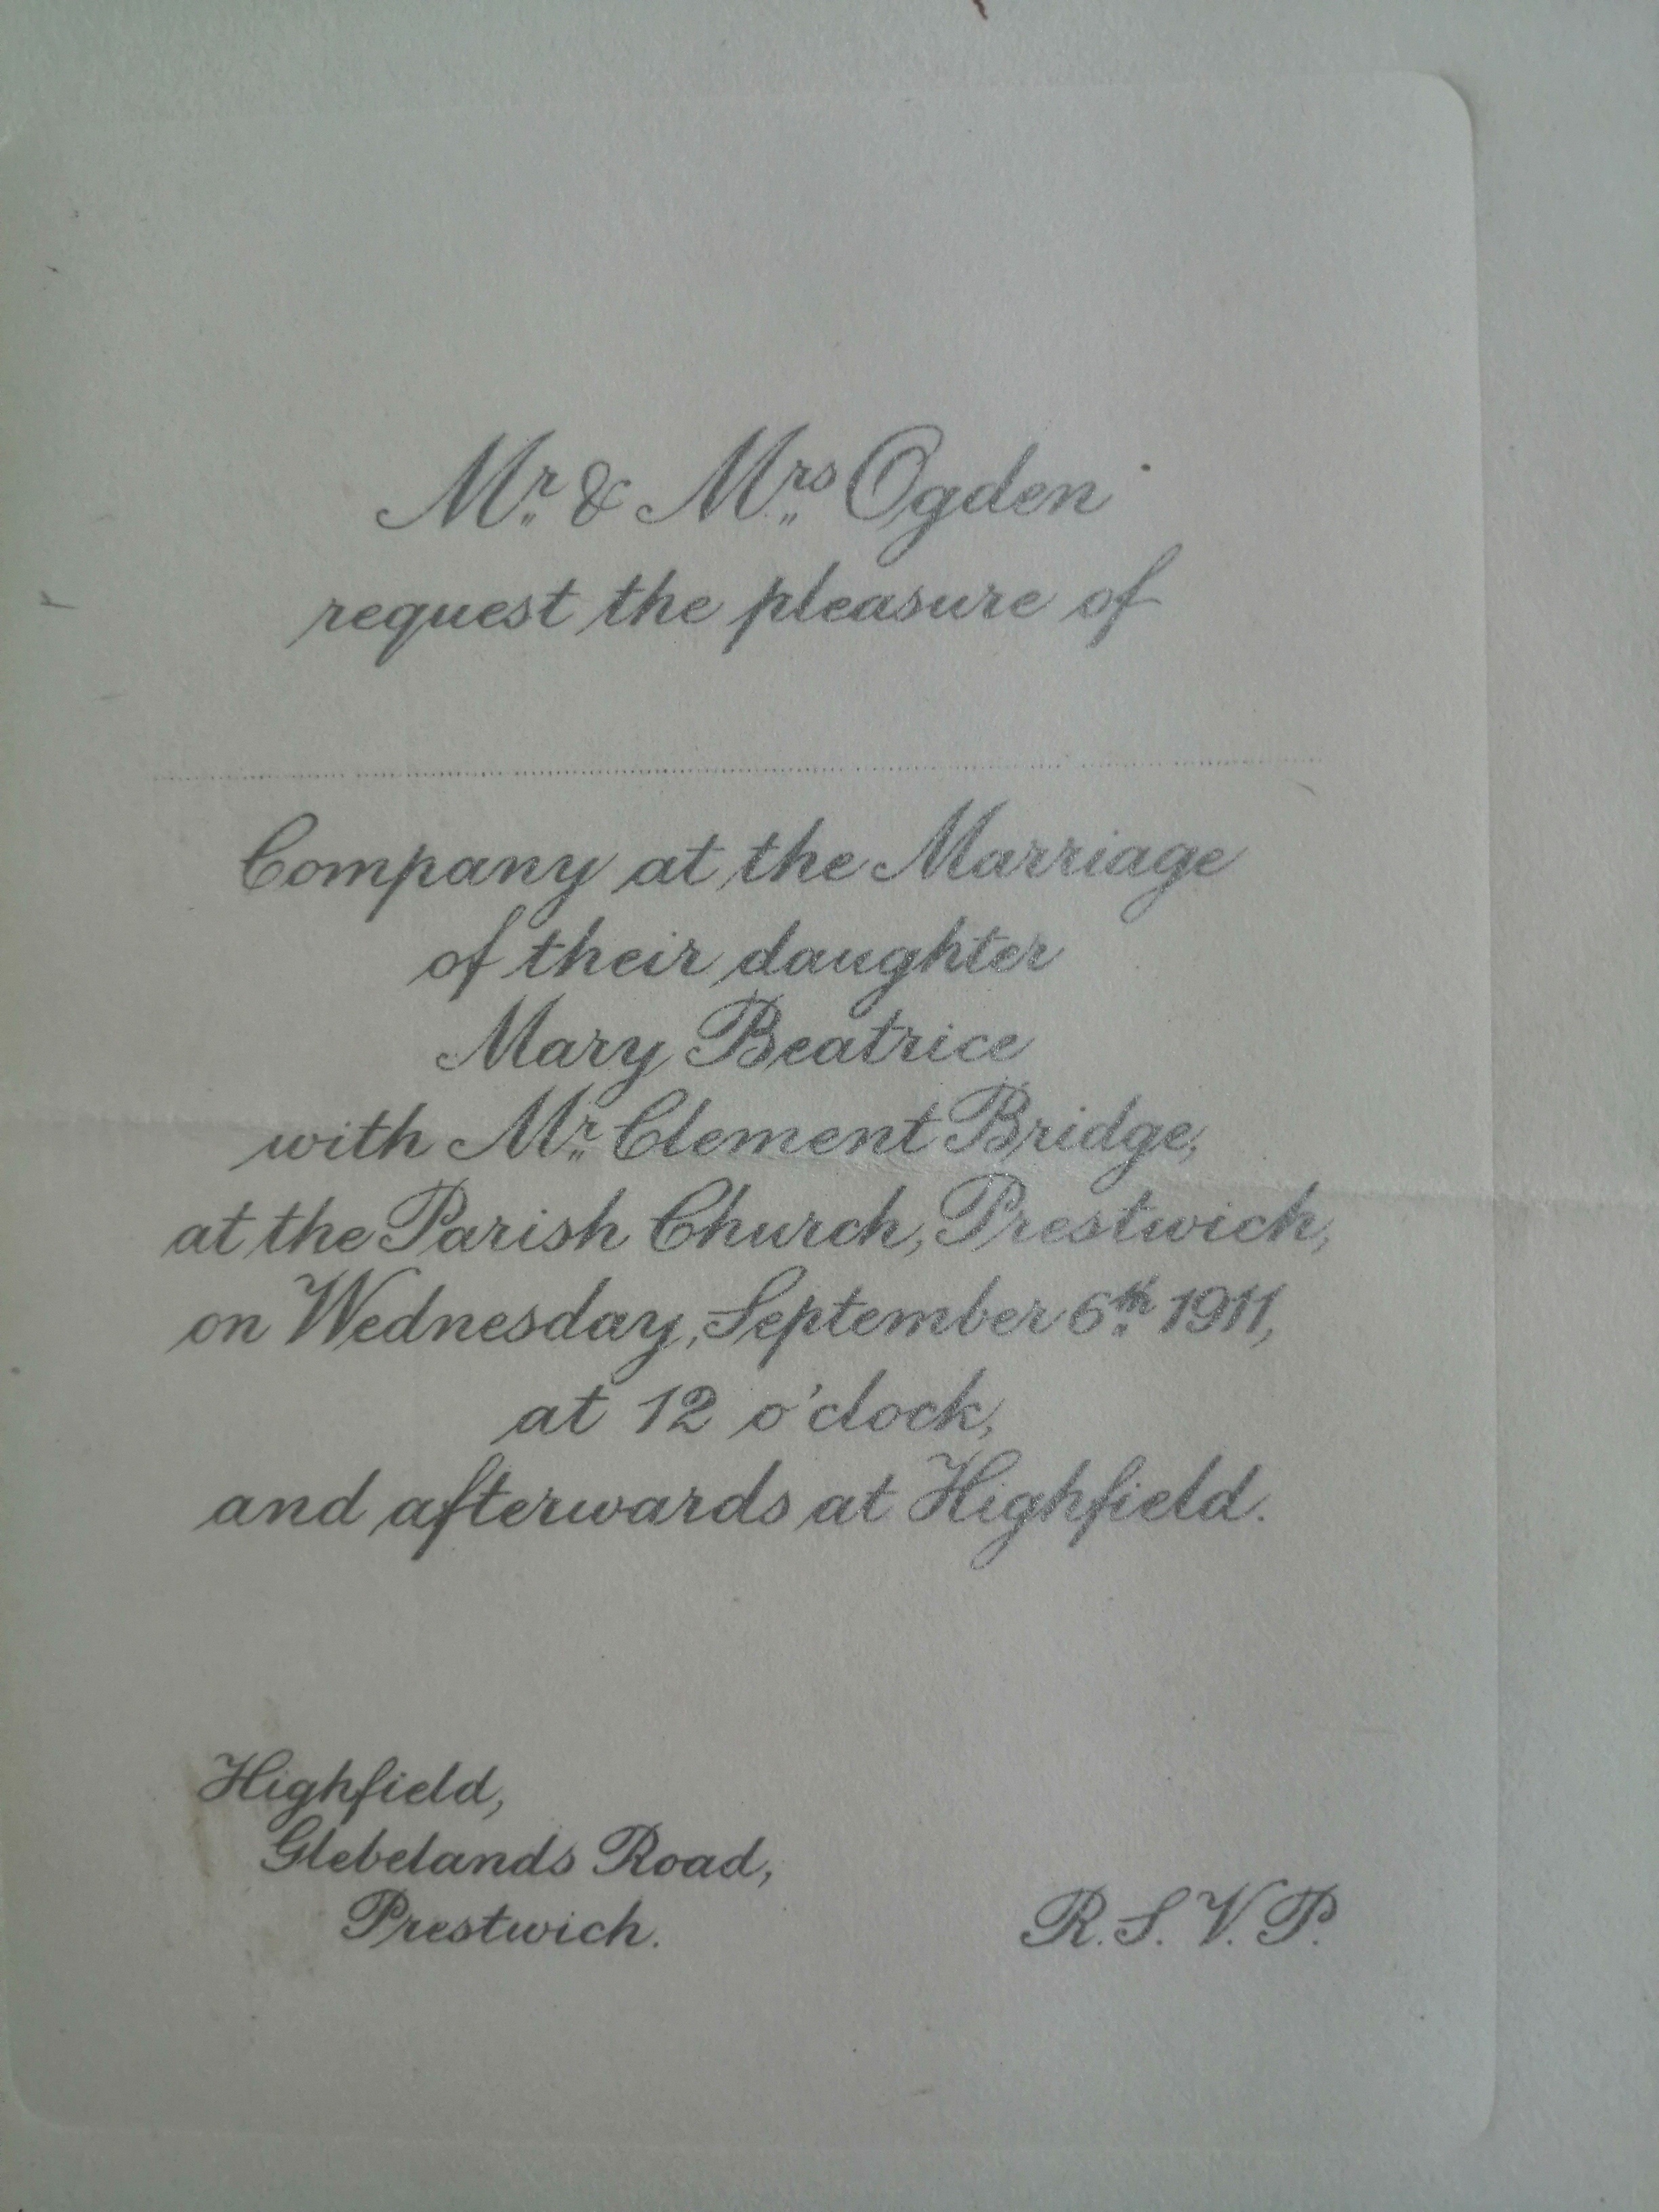 Mr. & Mrs. Ogden
request the pleasure of
Company at the Marriage
of their daughter
Mary Beatrice
with Mr. Clement Bridge,
at the Parish Church, Prestwich,
on Wednesday, September 6th 1911,
at 12 o'clock,
and afterwards at Highfield.
Highfield,
Glebelands Road,
Prestwich.
R.S.V.P.